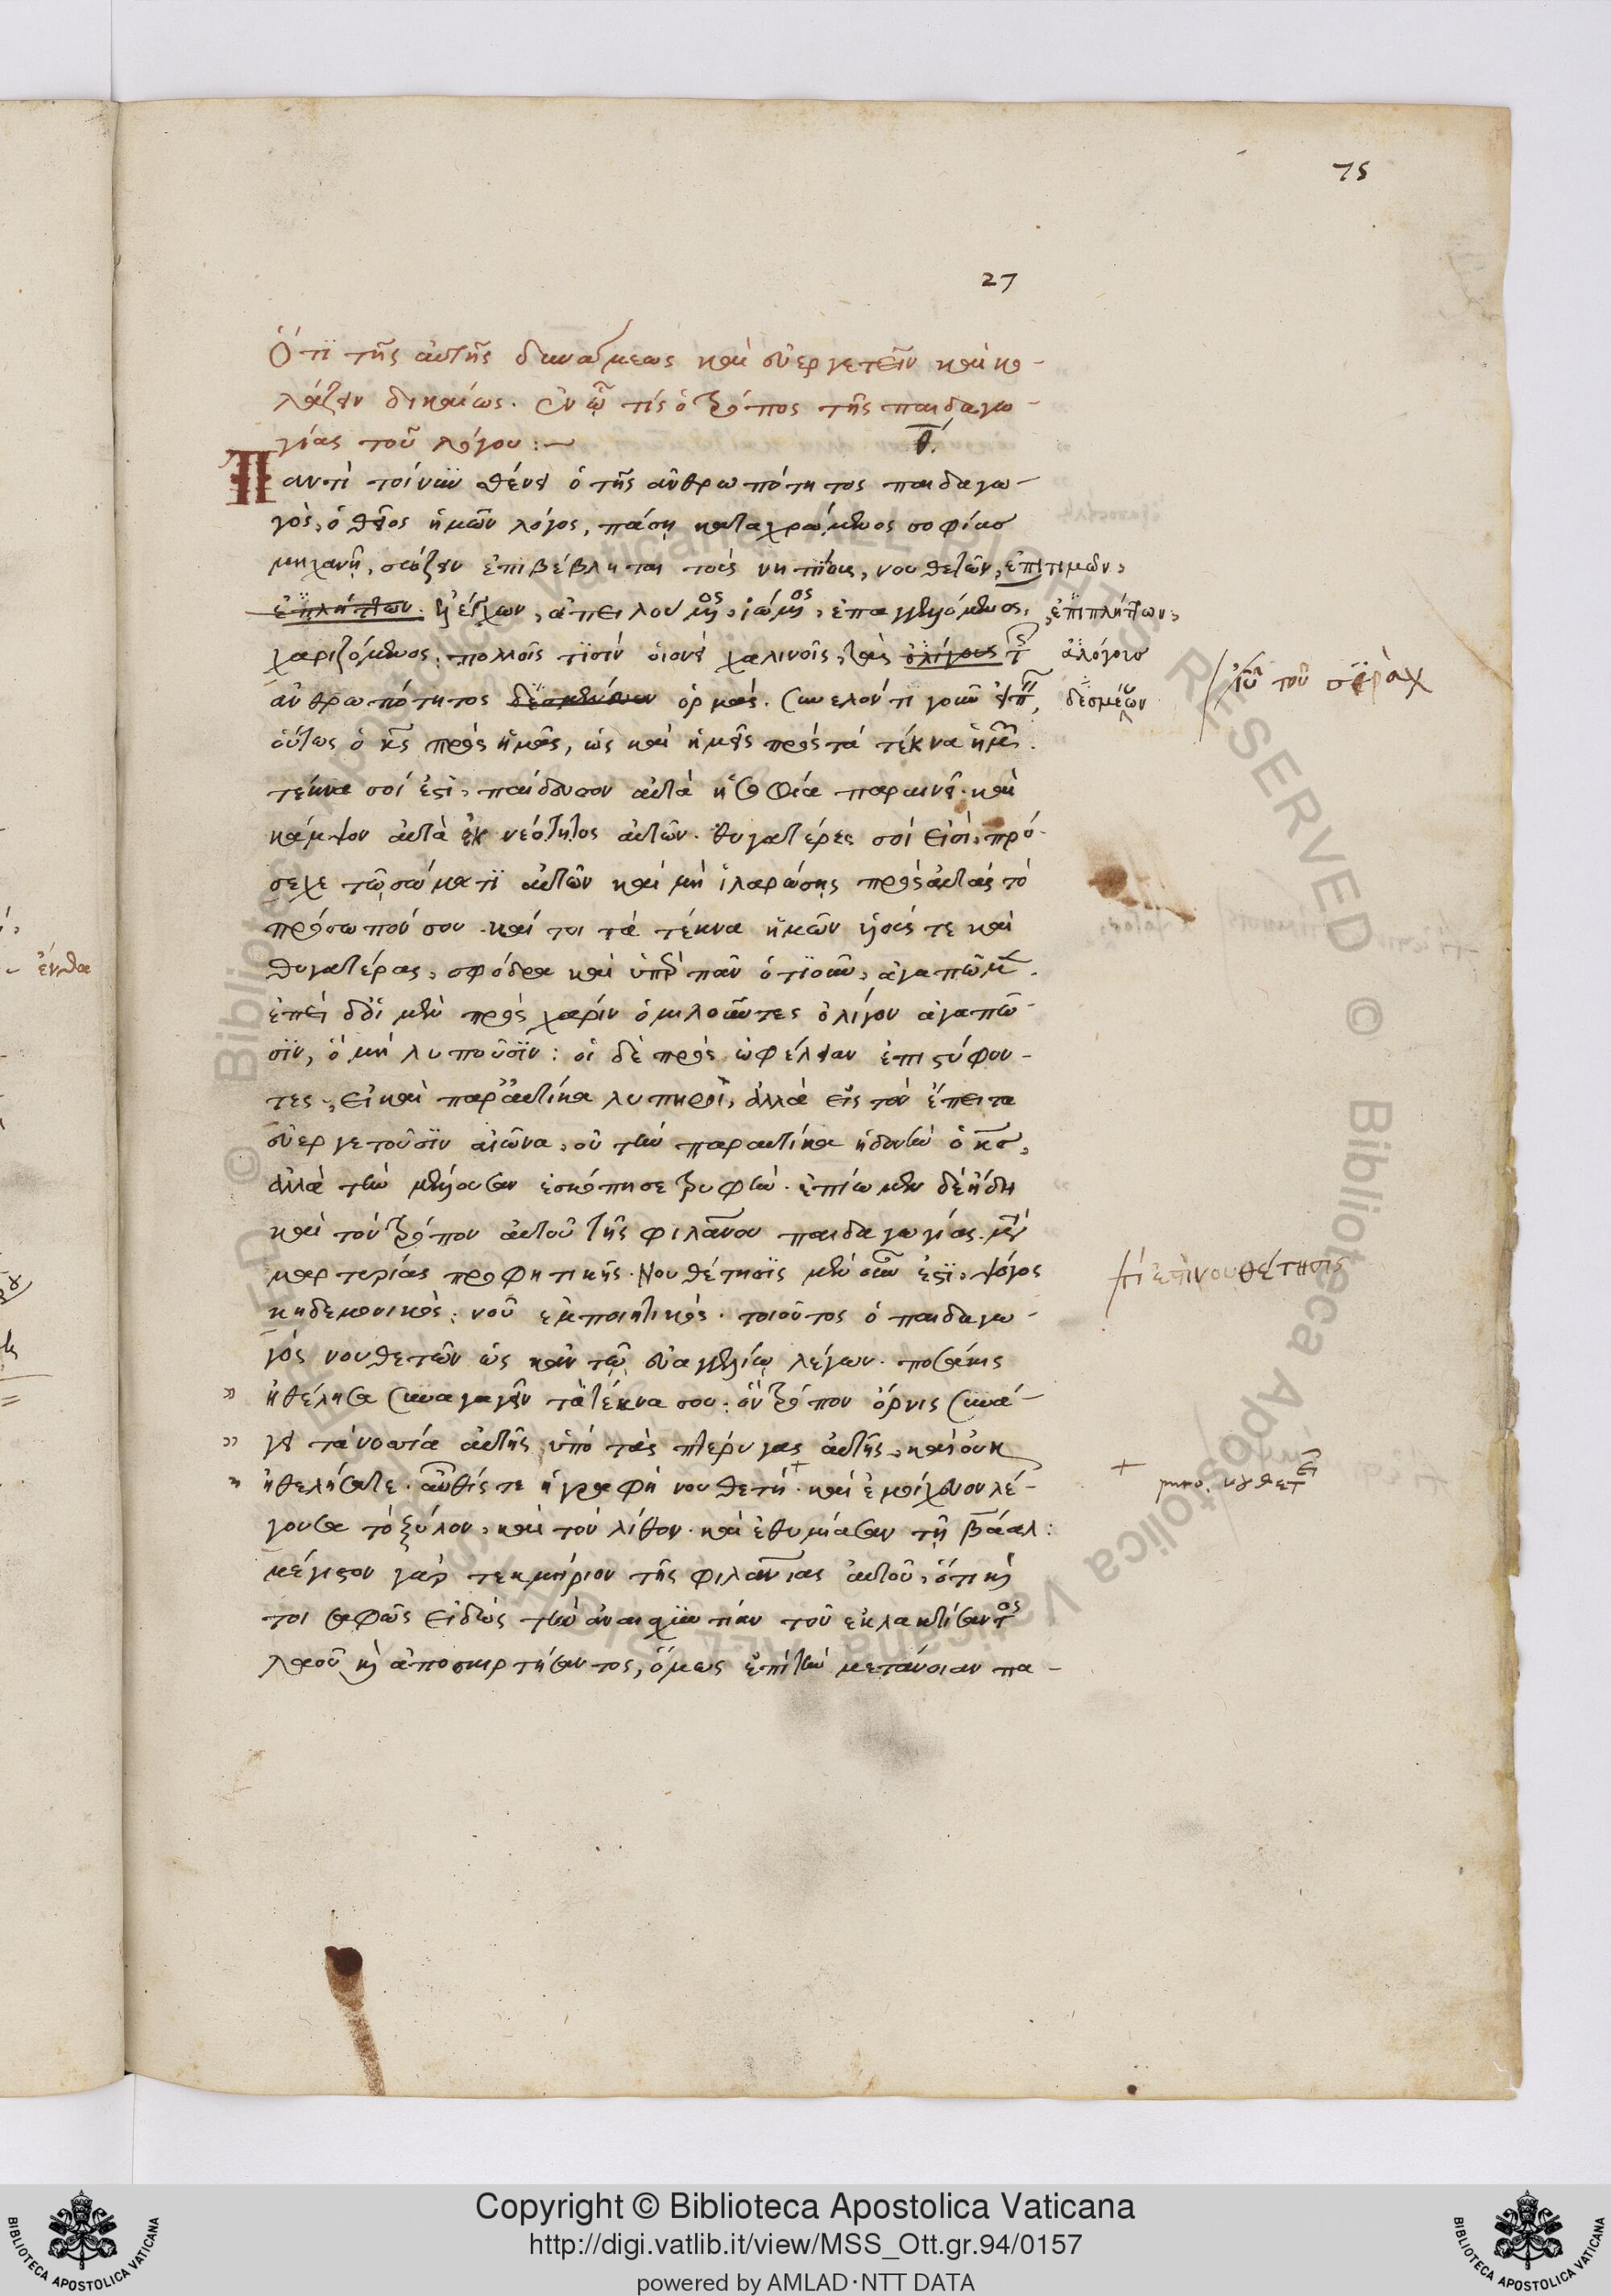 75
27
Ὅτι τῆς αὐτῆς δυνάμεως καὶ εὐεργετεῖν καὶ κο-
λάζειν δικαίως. ἐν ᾧ τίς ὁ τρόπος τῆς παιδαγω-
γίας τοῦ λόγου:~ θ'.
Παντὶ τοίνυν σθένει ὁ τῆς ἀνθρωπότητος παιδαγω-
γὸς, ὁ θεῖος ἡμῶν λόγος, πάσῃ καταχρώμενος σοφίας
μηχανῇ, σώζειν ἐπιβέβληται τοὺς νηπίους, νουθετῶν, ἐπιτιμῶν,
ἐπιπλήττων. ἐλέγχων, ἀπειλούμενος, ἰώμενος, ἐπαγγελλόμενος, ἐπιπλήττων,
χαριζόμενος, πολλοῖς τισὶν οἱονεὶ χαλινοῖς, τὰς ὀλίγους τῆς ἀλόγους
ἀνθρωπότητος ὁρμὰς. συνελόντι γοῦν εἰπεῖν, δεσμεύων
Ἰησοῦ τοῦ σιρὰχ
οὕτως ὁ κς πρὸς ἡμᾶς, ὡς καὶ ἡμεῖς πρὸς τὰ τέκνα ἡμῶν.
τέκνα σοί ἐστι, παίδευσον αὐτὰ ἡ σοφία παραινεῖ. καὶ
κάμψον αὐτὰ ἐκ νεότητος αὐτῶν. θυγατέρες σοί εἰσι, πρό-
σεχε τῷ σώματι αὐτῶν καὶ μὴ ἱλαρώσῃς πρὸς αὐτὰς τὸ
πρόσωπόν σου. καί τοι τὰ τέκνα ἡμῶν υἱούς τε καὶ
θυγατέρας, σφόδρα καὶ ὑπὲρ πᾶν ὁτιοῦν, ἀγαπῶμεν.
ἐπεὶ δὲ οἱ μὲν πρὸς χάριν ὁμιλοῦντες ὀλίγον ἀγαπῶ-
σιν, ὃ μὴ λυποῦσιν: οἱ δὲ πρὸς ὠφέλειαν ἐπιστύφον-
τες, εἰ καὶ παραυτίκα λυπηροὶ, ἀλλὰ εἰς τὸν ἔπειτα
εὐεργετοῦσιν αἰῶνα, οὐ τὴν παραυτίκα ἡδονὴν ὁ κς,
ἀλλὰ τὴν μέλλουσαν ἐσκόπησε τρυφήν. ἐπίωμεν δὲ ἤδη
καὶ τὸν τρόπον αὐτοῦ τῆς φιλανου παιδαγωγίας. μετὰ
μαρτυρίας προφητικῆς. Νουθέτησις μὲν οὖν ἐστὶ, ψόγος
τί ἐστι νουθέτησις
κηδεμονικὸς: νοῦ ἐμποιητικὸς. τοιοῦτος ὁ παιδαγω-
γὸς νουθετῶν ὡς κἂν τῷ εὐαγγελίῳ λέγων. ποσάκις
» ἠθέλησα συναγαγεῖν τὰ τέκνα σου. ὃν τρόπον ὄρνις συνά-
» γει τὰ νοσσία αὐτῆς ὑπὸ τὰς πτέρυγας αὐτῆς, καὶ οὐκ
» ἠθελήσατε. αὖθίς τε ἡ γραφὴ νουθετῆ. καὶ ἐμοίχευον λέ-
+ νουθετεῖ
γουσα τὸ ξύλον, καὶ τὸν λίθον. καὶ ἐθυμίασαν τῇ βάαλ:
μέγιστον γὰρ τεκμήριον τῆς φιλανίας αὐτοῦ, ὅτι καί
τοι σαφῶς εἰδὼς τὴν ἀναισχυντίαν τοῦ ἐκλακτίσαντος
λαοῦ καὶ ἀποσκιρτήσαντος, ὅμως ἐπὶ τὴν μετάνοιαν πα-
ἔνθα
Copyright © Biblioteca Apostolica Vaticana
http://digi.vatlib.it/view/MSS_Ott.gr.94/0157
powered by AMLAD·NTT DATA